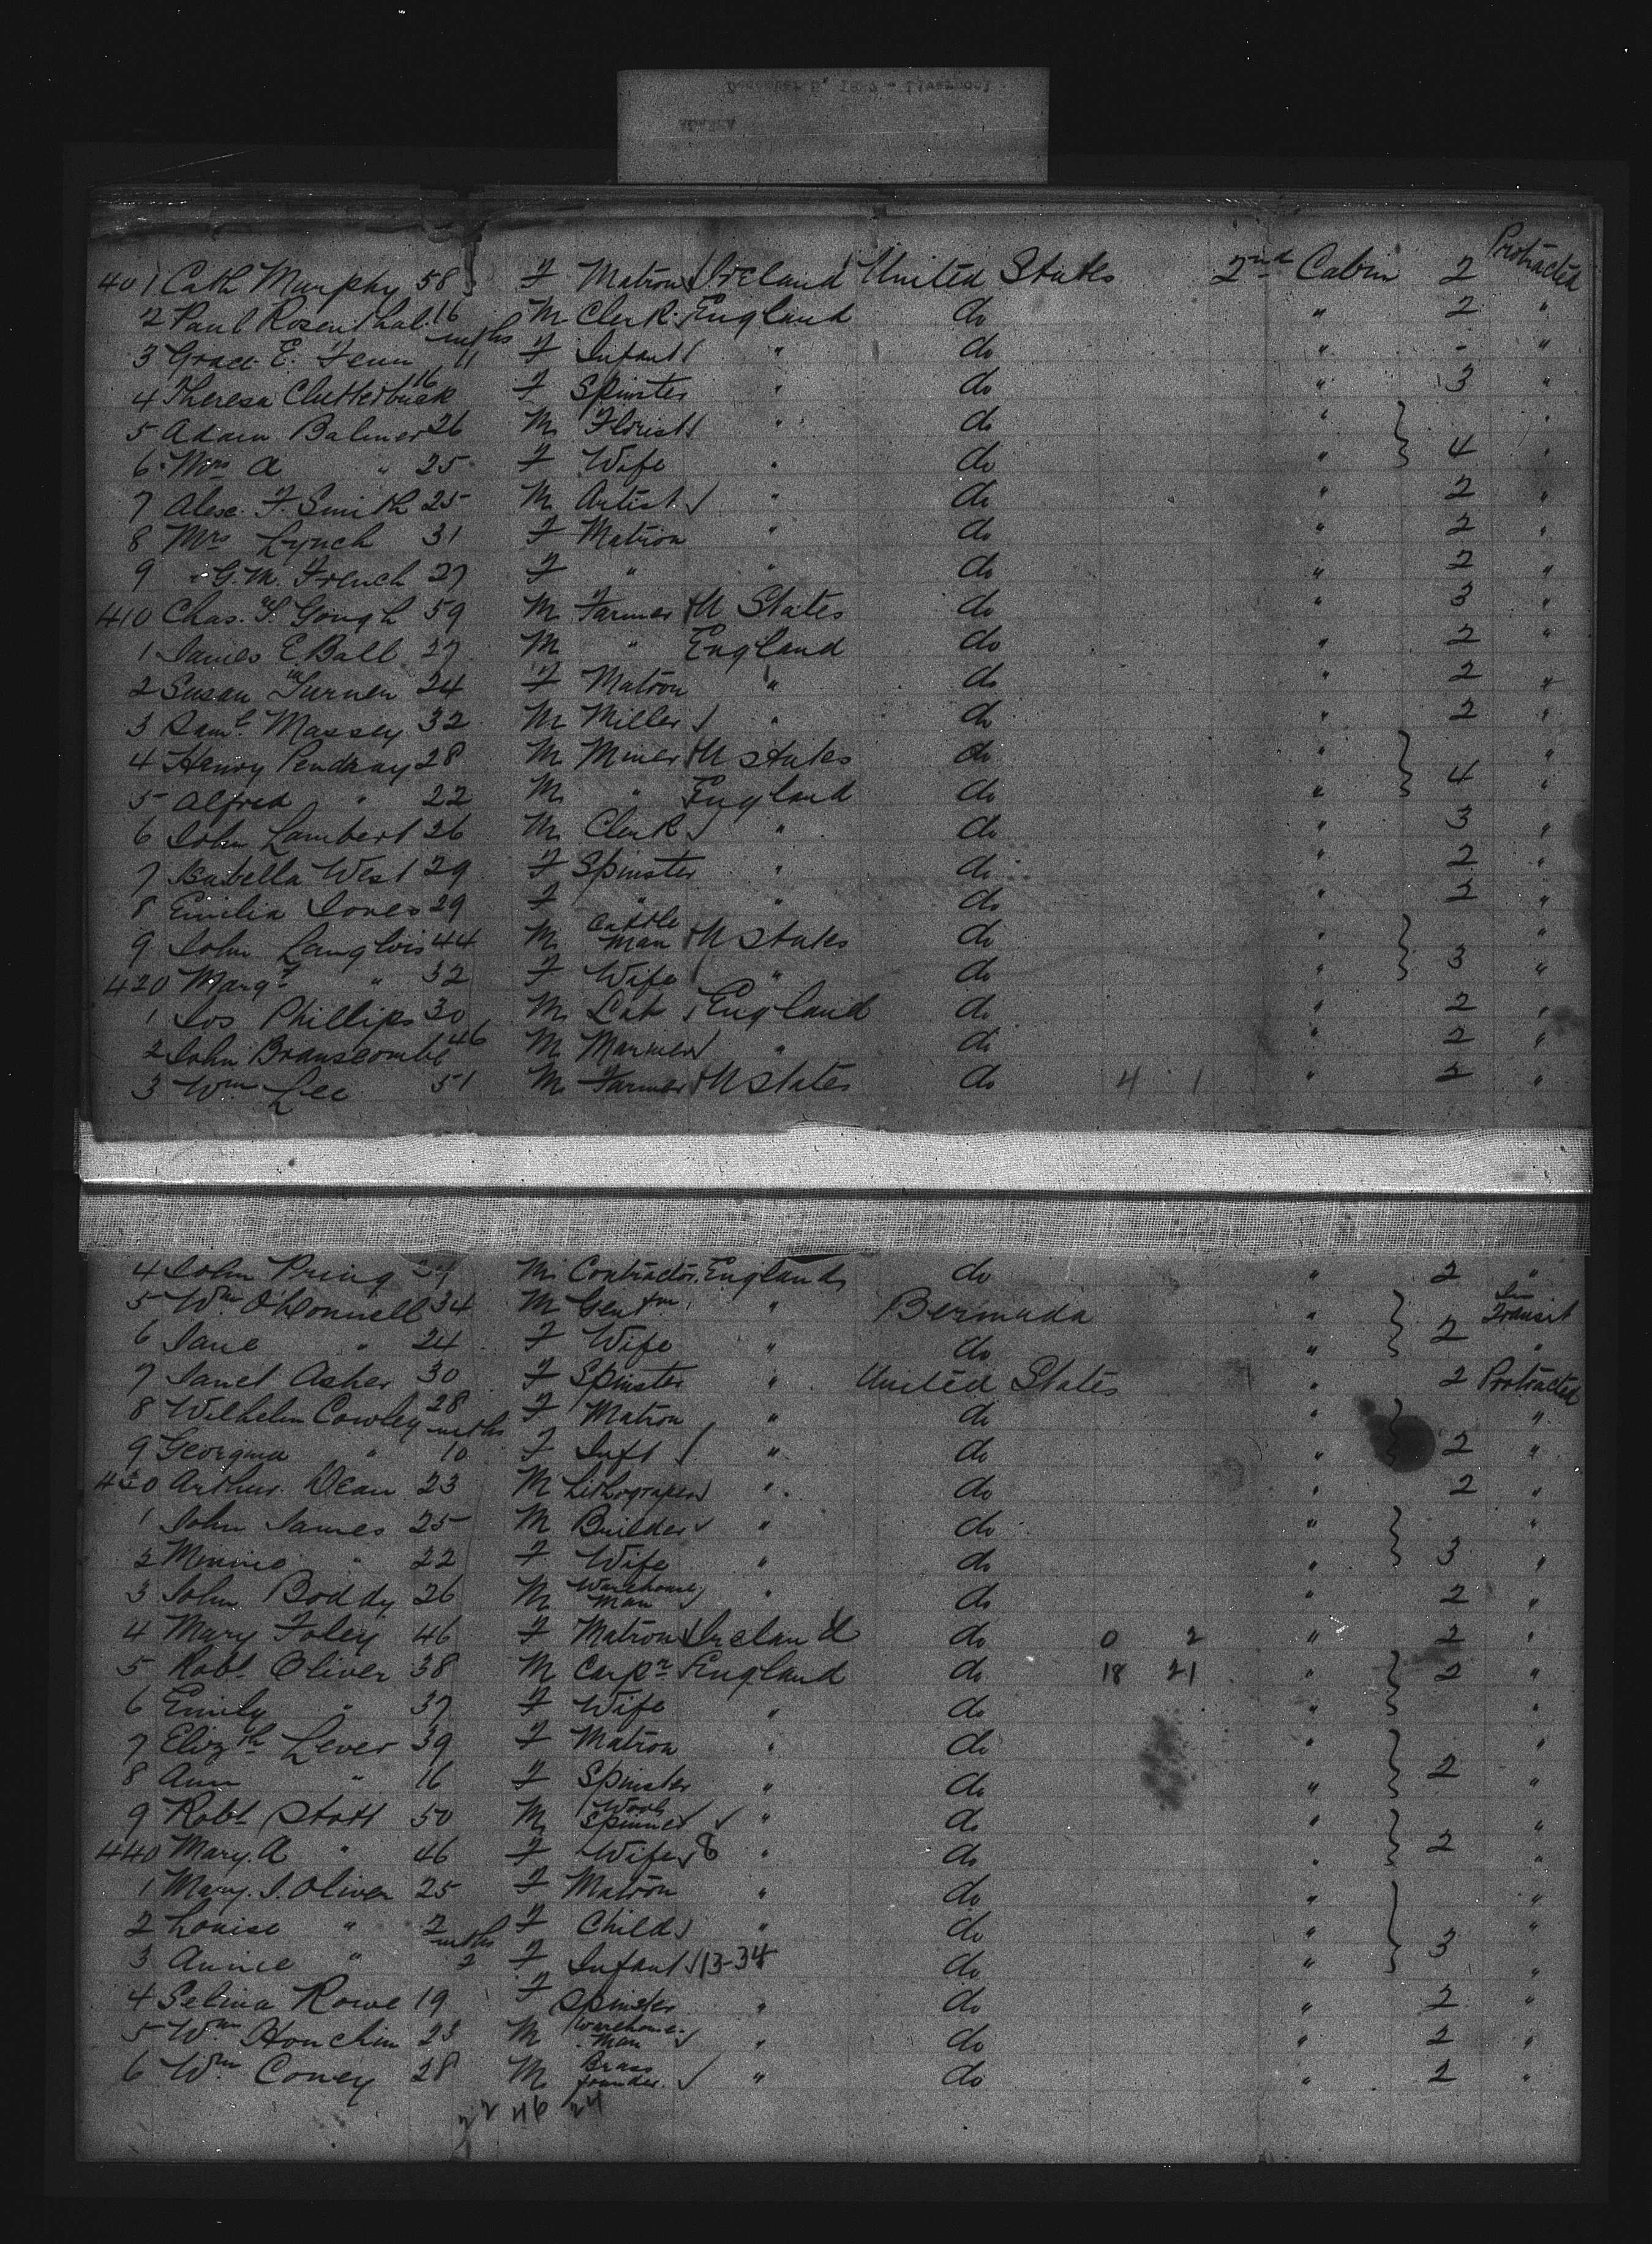 401 Cath Murphy 58 F Matron Ireland United States 2nd Cabin 2 Protracted
2 Paul Rosenthal 16 M Clerk England do " 2 "
3 Grace E. Fenn mths 11 F Infant " do " - "
4 Theresa Clutterbuck 16 F Spinster " do " 3 "
5 Adam Balmer 26 M Florist " do " "
6 Mrs A " 25 F Wife " do " 4 "
7 Alex. F. Smith 25 M Artist " do " 2 "
8 Mrs Lynch 31 F Matron " do " 2 "
9 " G. M. French 27 F " " do " 2 "
410 Chas. Gough 59 M Farmer U States do " 3 "
1 James E. Ball 27 M " England do " 2 "
2 Susan Turner 24 F Matron " do " 2 "
3 Saml. Massey 32 M Miller " do " 2 "
4 Henry Pendray 28 M Miner U States do " "
5 Alfred " 22 M " England do " 4 "
6 John Lambert 26 M Clerk " do " 3 "
7 Isabella West 29 F Spinster " do " 2 "
8 Emilia Jones 29 F " " do " 2 "
9 John Langlois 44 M Cattle Man U States do " "
420 Margt " 32 F Wife " do " 3 "
1 Jos Phillips 30 M Lab England do " 2 "
2 John Branscombe 46 M Mariner " do " 2 "
3 Wm Lee 51 M Farmer U States do 4 1 " 2 "
4 John Pring M Contractor England do " 2 "
5 Wm O'Connell 34 M Gentm " Bermuda " In Transit
6 Jane " 24 F Wife " do " 2 "
7 Janet Asher 30 F Spinster " United States " 2 Protracted
8 Wilhelm Cowley 28 F Matron " do " "
9 Georgina " mths 10 F Inft " do " 2 "
430 Arthur Dean 23 M Lithograper " do " 2 "
1 John James 25 M Builder " do " "
2 Minnie " 22 F Wife " do " 3 "
3 John Boddy 26 M Warehouse Man " do " 2 "
4 Mary Foley 46 F Matron Ireland do 0 2 " 2 "
5 Robt Oliver 38 M Carpr England do 18 21 " 2 "
6 Emily " 37 F Wife " do " "
7 Elizth Lever 39 F Matron " do " "
8 Ann " 16 F Spinster " do " 2 "
9 Robt Stott 50 M Wool Spinner " do " "
440 Mary. A " 46 F Wife 8 " do " 2 "
1 Mary. J. Oliver 25 F Matron " do " "
2 Louise " 2 F Child " do " "
3 Annie " mths 2 F Infant 13-34 do " 3 "
4 Selina Rowe 19 F Spinster " do " 2 "
5 Wm Houchin 23 M Warehouse Man " do " 2 "
6 Wm Coney 28 M Brass founder " do " 2 "
22 46 24